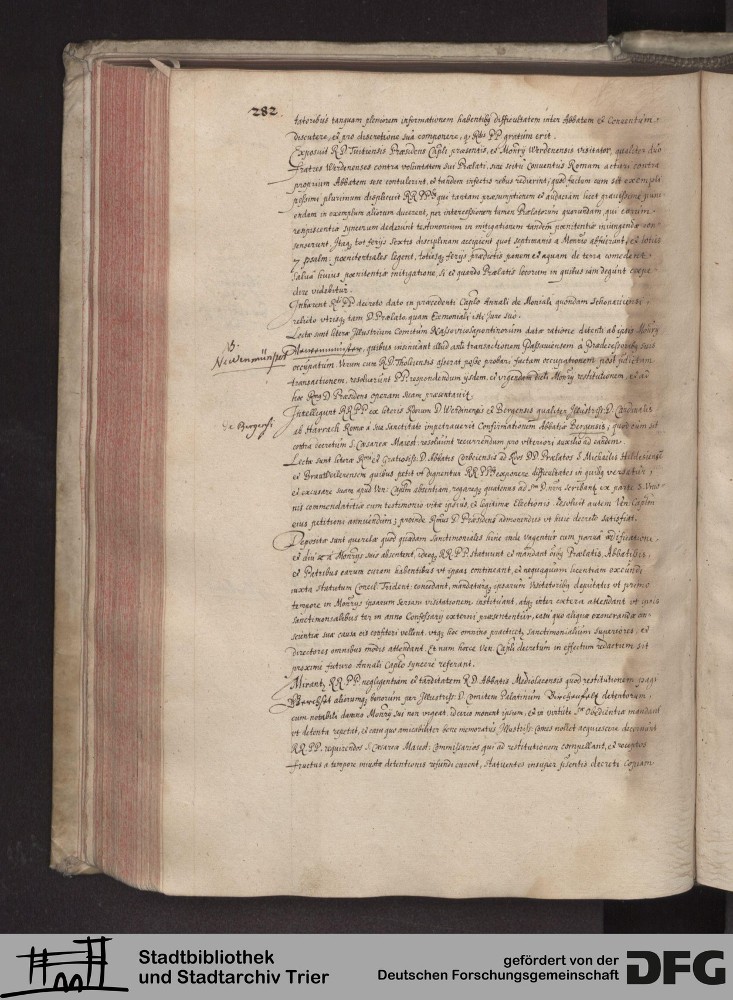 282
tatoribus tanquam pleniorem informationem habentibus difficultatem inter Abbatem et Conventum
discutere, et pro discretione sua componere, q. Rdis PP gratum erit.
Exposuit R D Tuitiensis Præsidens Capli præsentis, et Monrij Werdenensis visitator, qualiter duo
fratres Werdenenses contra voluntatem sui Prælati, sine scitu Conventus Romam acturi contra
proprium Abbatem sese contulerint, et tandem infectis rebus redierint, quod factum cum sit exempli
pessimi plurimum displicuit RR PPbus qui tantam præsumptionem et audaciam licet gravissime puni
endam in exemplum aliorum ducerent, per intercessionem tamen Prælatorum quorundam, qui
resipiscentiæ syncerum dederunt testimonium in mitigationem tandem pœnitentiæ iniungendæ con
senserunt, Itaq tot ferijs sextis disciplinam accipient quot septimanis a Monrio abfuerint, et toties
7 psalm: pœnitentiales legent, totiesq ferijs prædictis panem et aquam de terra comedent
Salva huius pœnitentiæ mitigatione, si et quando Prælatis locorum in quibus iam degunt expe
dire videbitur.
Inhærent Rdi PP decreto dato in præcedenti Caplo Annali de Moniali quondam Schonaviensi,
relicto utrisq tam D. Prælato quam Exmoniali isti jure suo.
Lectæ sunt literæ Illustrium Comitum Nassovicosapontinorum datæ ratione detenti ab ipsis Monrij
B.
Neuenmünster
Neuenmünster, quibus insinuant illud ante transactionem Passaviensem a Prædecessoribus suis
occupatum. Verum cum R. D. Tholeiensis asserat posse probari factam occupationem post dictam
transactionem, resolverunt PP. respondendum ijsdem, et urgendam dicti Monrij restitutionem, et ad
hoc Rmus D Præsidens operam suam præsentavit.
de Bergensi
Intelligunt RR PP ex literis Rdorum D. Werdinensis et Bergensis qualiter Illustriss: D. Cardinalis
ab Harrach Romæ a sua Sanctitate impetraverit Confirmationem Abbatiæ Bergensis, quod cum sit
contra decretum S. Cæsareæ Maiest: resolvunt recurrendum pro ulteriori auxilio ad eandem.
Lectæ sunt literæ Rmi et Gratiosiss: D. Abbatis Corbeiensis ad Rdos DD Prælatos S. Michaelis Hildesiensis
et Brautweilerensem quibus petit ut dignentur RR PPbus exponere difficultates in quibus versatur,
et excusare suam apud Ven: Caplum absentiam, rogareq quatenus ad Sm. D. nrum scribant ex parte S. Unio
nis commendatitias cum testimonio vitæ ipsius, et legitimæ Electionis. resolvit autem Ven. Caplum
eius petitioni annuendum; proinde Rdus D Præsidens admonendus ut huic decreto satisfiat.
Depositæ sunt querelæ quod quædam Sanctimoniales hinc inde vagentur cum parva ædificatione,
et diu a Monrijs suis absentent, ideoq RR PP statuunt et mandant ut Prælatis, Abbatibus
et Patribus earum curam habentibus ut ipsas contineant, et nequaquam licentiam exeundi
iuxta statutum Concil Trident: concedant, mandaturq ipsarum Visitatoribus deputatis ut primo
tempore in Monrijs ipsarum seriam visitationem instituant, atq inter cætera attendant ut ipsis
sanctimonialibus ter in anno Confessarij externi præsententur, casu quo aliquæ exonerandæ con
scientiæ suæ causa eis confiteri vellent. utq hoc omnino practicet, sanctimonialium superiores, et
directores omnibus modis attendant Et num hocce Ven. Capli decretum in effectum redactum sit
proximo futuro Annali Caplo syncere referant.
Mirantur RR PP negligentiam et tarditatem R D Abbatis Mediolacensis quod restitutionem
Berchset aliorumq bonorum per Illustriss: D. Comitem Palatinum detentorum,
cum notabili damno Monrij sui non urgeat. idcirco monent ipsum, et in virtute Stæ Obedientiæ mandant
ut detenta repetat, et casu quo amicabiliter bene memoratus Illustriss: Comes nollet acquiescere decernunt
RR PP. requirendos S. Cæsareæ Maiest: Commissarios qui ad restitutionem compellant, et
fructus a tempore iniustæ detentionis refundi curent, statuentes insuper præsentis decreti Copiam
Stadtbibliothek
und Stadtarchiv Trier
gefördert von der
Deutschen Forschungsgemeinschaft
DFG